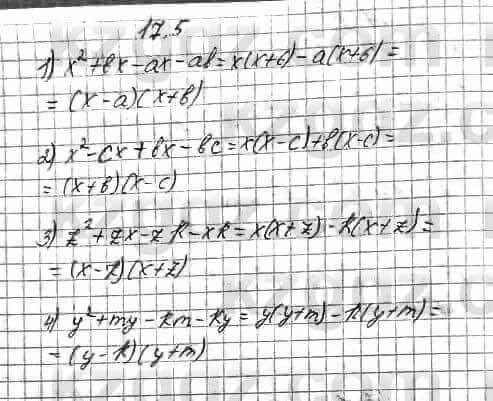 17.5
1) x² + bx - ax - ab = x(x+b) - a(x+b) =
= (x-a)(x+b)
2) x² - cx + bx - bc = x(x-c) + b(x-c) =
= (x+b)(x-c)
3) z² + zx - zk - xk = x(x+z) - k(x+z) =
= (x-k)(x+z)
4) y² + my - km - ky = y(y+m) - k(y+m) =
= (y-k)(y+m)